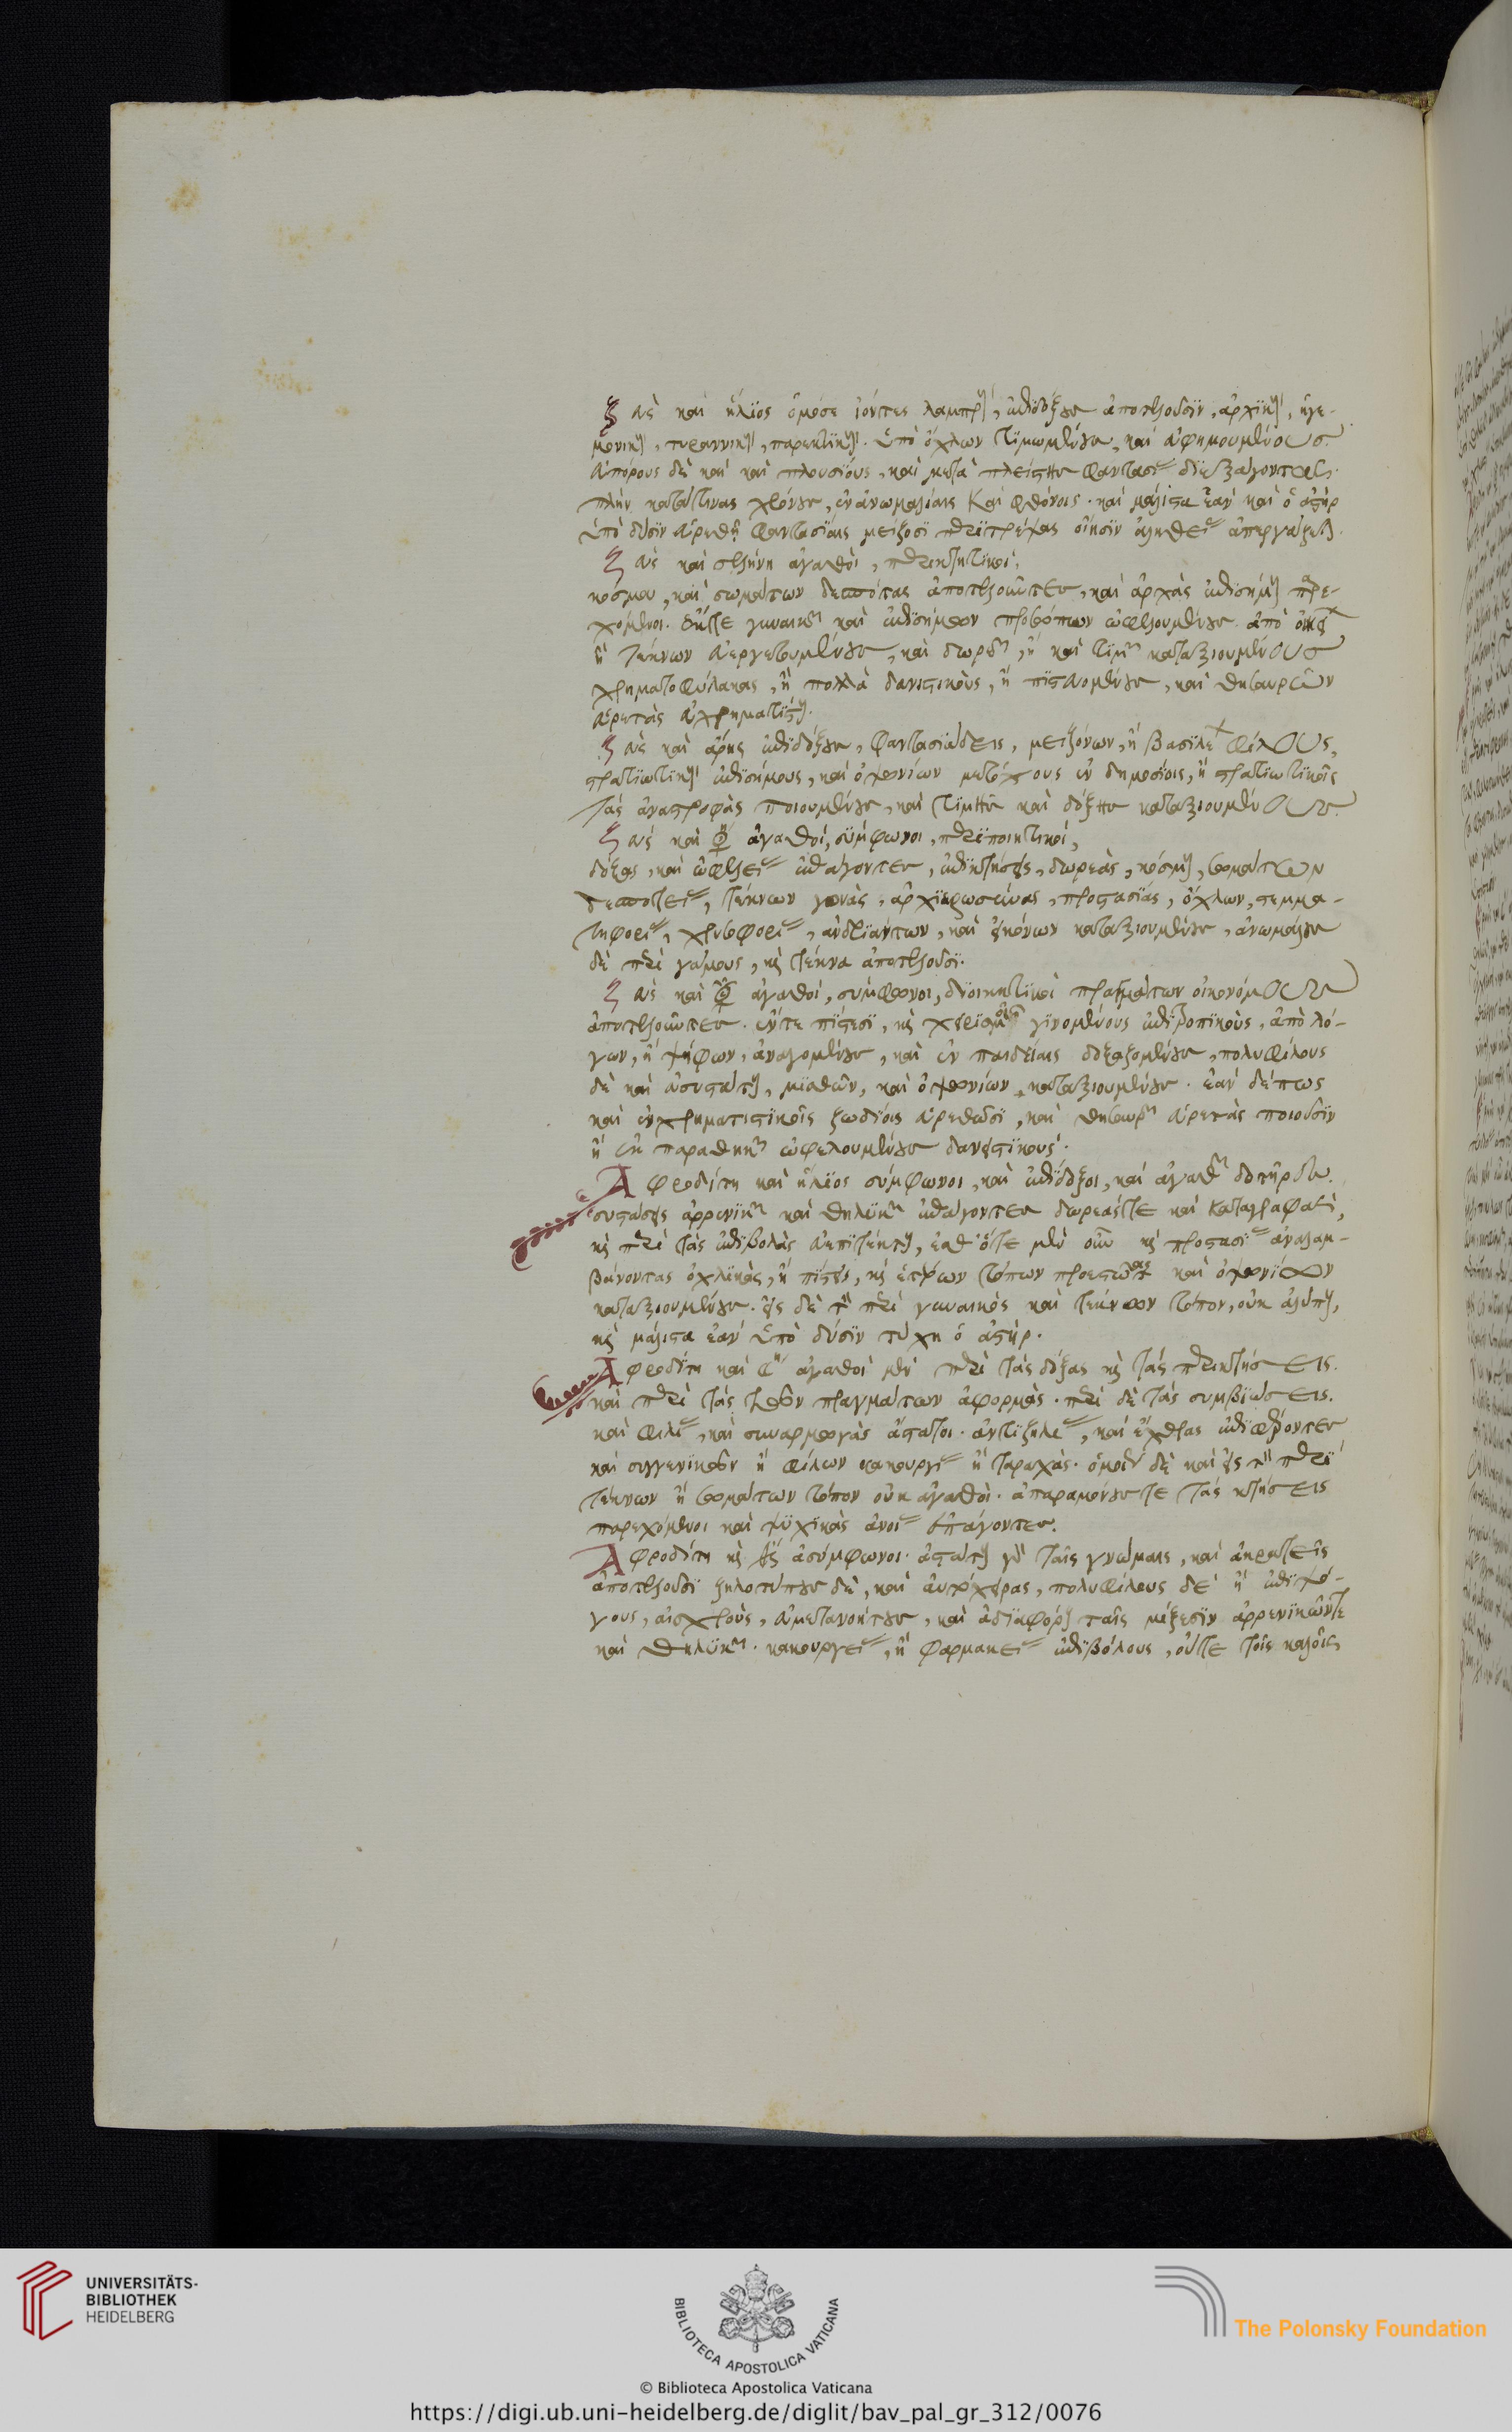 Ζεὺς καὶ ἥλιος ὁμόσε ἰόντες λαμπροὺς, ἐπιδόξους ἀποτελοῦσϊν, ἀρχϊκοὺς, ἡγε-
μονικοὺς, τυραννικοὺς, παρεκτϊκοὺς. ὑπὸ ὄχλων τϊμωμένους, καὶ εὐφημουμένους.
εὐπόρους δὲ καὶ καὶ πλουσίους, καὶ μετὰ πλείστης φαντασίας διεξάγοντας.
πλὴν κατά τινας χρόνους, ἐν ἀνωμαλίαις καὶ φθόνοις. καὶ μάλιστα ἐὰν καὶ ὁ ἀστὴρ
ὑπὸ δύσϊν εὑρεθῇ φαντασίαις μείζοσϊ περϊτρέχας οἴησϊν ἀληθείας ἀπεργάζεται.
Ζεὺς καὶ σελήνη ἀγαθοὶ, περικτητϊκοί,
κόσμου, καὶ σωμάτων δεσπότας ἀποτελοῦντες, καὶ ἀρχὰς ἐπισήμους παρε-
χόμενοι. ἔκ τε γυναικῶν καὶ ἐπισήμων προσώπων ὠφελουμένους. ἀπὸ οἰκείων
ἢ τέκνων εὐεργετουμένους, καὶ δωρεῶν, ἢ καὶ τϊμῶν καταξιουμένους
χρηματοφύλακας, ἢ πολλὰ δανιστικοὺς, ἢ πϊστευομένους, καὶ θησαυρῶν
εὑρετὰς εὐχρηματϊστους.
Ζεὺς καὶ ἄρης ἐπιδόξους, φαντασιώδεις, μειζόνων, ἢ βασιλέων φίλους,
στρατϊωτϊκοὺς ἐπισήμους, καὶ ὀψωνίων μετόχους ἐν δημοσίοις, ἢ στρατϊωτϊκοῖς
τὰς ἀναστροφὰς ποιουμένους, καὶ τϊμῆς καὶ δόξης καταξιουμένους.
Ζεὺς καὶ ἀγαθοί, σύμφωνοι, περϊποιητικοί,
δόξας, καὶ ὠφελείας ἐπάγοντες, ἐπικτήσεις, δωρεὰς, κόσμους, σωμάτων
δεσποτείας, τέκνων γονὰς, ἀρχϊερωσύνας, προστασίας, ὄχλων, στεμμα-
τηφορίας, χρυσοφορίας, ἀνδρϊάντων, καὶ εἰκόνων καταξιουμένους, ἀνωμάλους
δὲ περὶ γάμους, καὶ τέκνα ἀποτελοῦσϊ.
Ζεὺς καὶ ἀγαθοί, σύμφωνοι, διοικητϊκοὶ πραγμάτων οἰκονόμους
ἀποτελοῦντες. ἔν τε πίστεσϊ, καὶ χειρϊσμοῖς γϊνομένους ἐπιτροπϊκοὺς, ἀπὸ λό-
γων, ἢ ψήφων, ἀναγομένους, καὶ ἐν παιδείαις δοξαζομένους, πολυφίλους
δὲ καὶ εὐσυστάτους, μϊσθῶν, καὶ ὀψωνίων, καταξιουμένους. ἐὰν δέ πως
καὶ ἐν χρηματιστϊκοῖς ζωδίοις εὑρεθῶσϊ, καὶ θησαυρῶν εὑρετὰς ποιοῦσϊν
ἢ ἐκ παραθηκῶν ὠφελουμένους δανειστϊκούς.
Ἀφροδίτη καὶ ἥλϊος σύμφωνοι, καὶ ἐπίδοξοι, καὶ ἀγαθῶν δοτῆρες.
συστάσεις ἀρρενϊκῶν καὶ θηλυκῶν ἐπάγοντες δωρεάς τε καὶ καταγραφὰς,
καὶ περὶ τὰς ἐπϊβολὰς εὐεπϊτέκτους, ἐσθ’ ὅτε μὲν οὖν καὶ προστασίας ἀναλαμ-
βάνοντας ὀχλϊκὰς, ἢ πίστεις, καὶ ἑτέρων τόπων προεστῶτας καὶ ὀψωνίων
καταξιουμένους. εἰς δὲ τὸν περὶ γυναικὸς καὶ τέκνων τόπον, οὐκ ἀλύπους,
καὶ μάλιστα ἐὰν ὑπὸ δύσϊν τύχῃ ὁ ἀστήρ.
Ἀφροδίτη καὶ ἀγαθοὶ μὲν περὶ τὰς δόξας καὶ τὰς περικτήσεις.
καὶ περὶ τὰς τῶν πραγμάτων ἀφορμάς. περὶ δὲ τὰς συμβϊώσεις.
καὶ φιλίας, καὶ συναρμογὰς ἄστατοι. ἀντϊζηλίας, καὶ ἔχθρας ἐπϊφέροντες
καὶ συγγενϊκῶν ἢ φίλων κακουργίας ἢ ταραχάς. ὁμοίως δὲ καὶ εἰς τὸν περὶ
τέκνων ἢ σωμάτων τόπον οὐκ ἀγαθοί. ἀπαραμόνους τε τὰς κτήσεις
παρεχόμενοι καὶ ψυχϊκὰς ἀνοίας ἐπάγοντες.
Ἀφροδίτη καὶ ἀσύμφωνοι. ἀστάτους γὰρ ταῖς γνώμαις, καὶ ἀκρατεῖς
ἀποτελοῦσϊ ζηλοτύπους δὲ, καὶ αὐτόχειρας, πολυφίλους δὲ ἢ ἐπιψό-
γους, αἰσχροὺς, εὐμετανοήτους, καὶ ἀδϊαφόρους ταῖς μίξεσϊν ἀρρενϊκῶν τε
καὶ θηλυκῶν. κακουργείας, ἢ φαρμακείας ἐπϊβόλους, οὔτε τοῖς καλοῖς
UNIVERSITÄTS-
BIBLIOTHEK
HEIDELBERG
BIBLIOTECA APOSTOLICA VATICANA
The Polonsky Foundation
© Biblioteca Apostolica Vaticana
https://digi.ub.uni-heidelberg.de/diglit/bav_pal_gr_312/0076